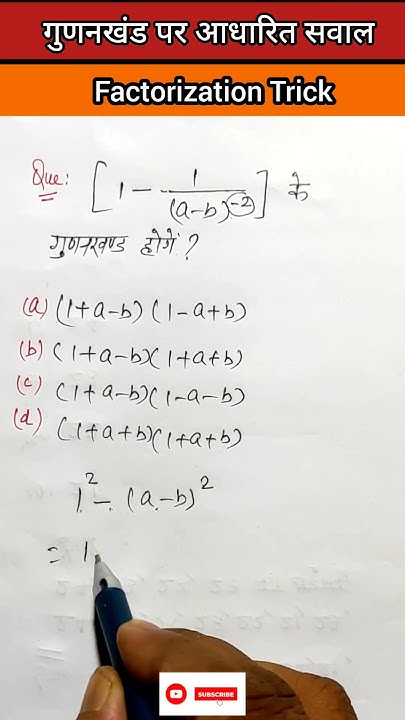 गुणनखंड पर आधारित सवाल
Factorization Trick
Que: [1 - 1/(a-b)^-2] के
गुणनखण्ड होगें ?
(a) (1+a-b) (1-a+b)
(b) (1+a-b)(1+a+b)
(c) (1+a-b)(1-a-b)
(d) (1+a+b)(1+a+b)
1² - (a-b)²
= 1
SUBSCRIBE